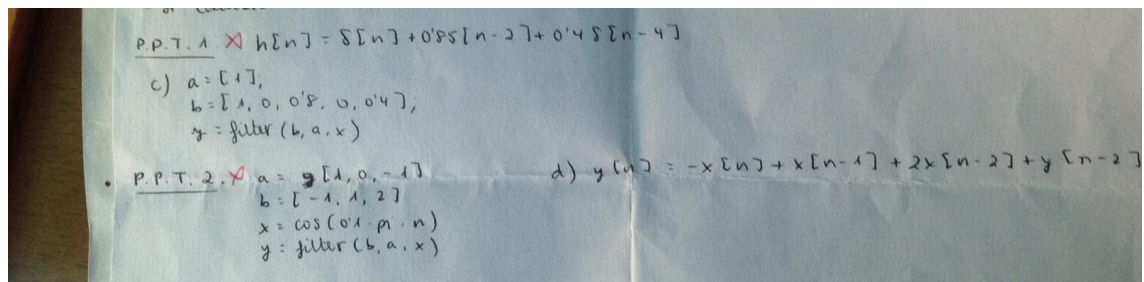 P.P.T. 1. X h[n] = δ[n] + 0'8δ[n-2] + 0'4 δ[n-4]
c) a = [1],
b = [1, 0, 0'8, 0, 0'4],
y = filter (b, a, x)
P.P.T. 2. X a = [1, 0, -1]
b = [-1, 1, 2]
x = cos (0'1 · pi · n)
y = filter (b, a, x)
d) y[n] = -x[n] + x[n-1] + 2x[n-2] + y[n-2]